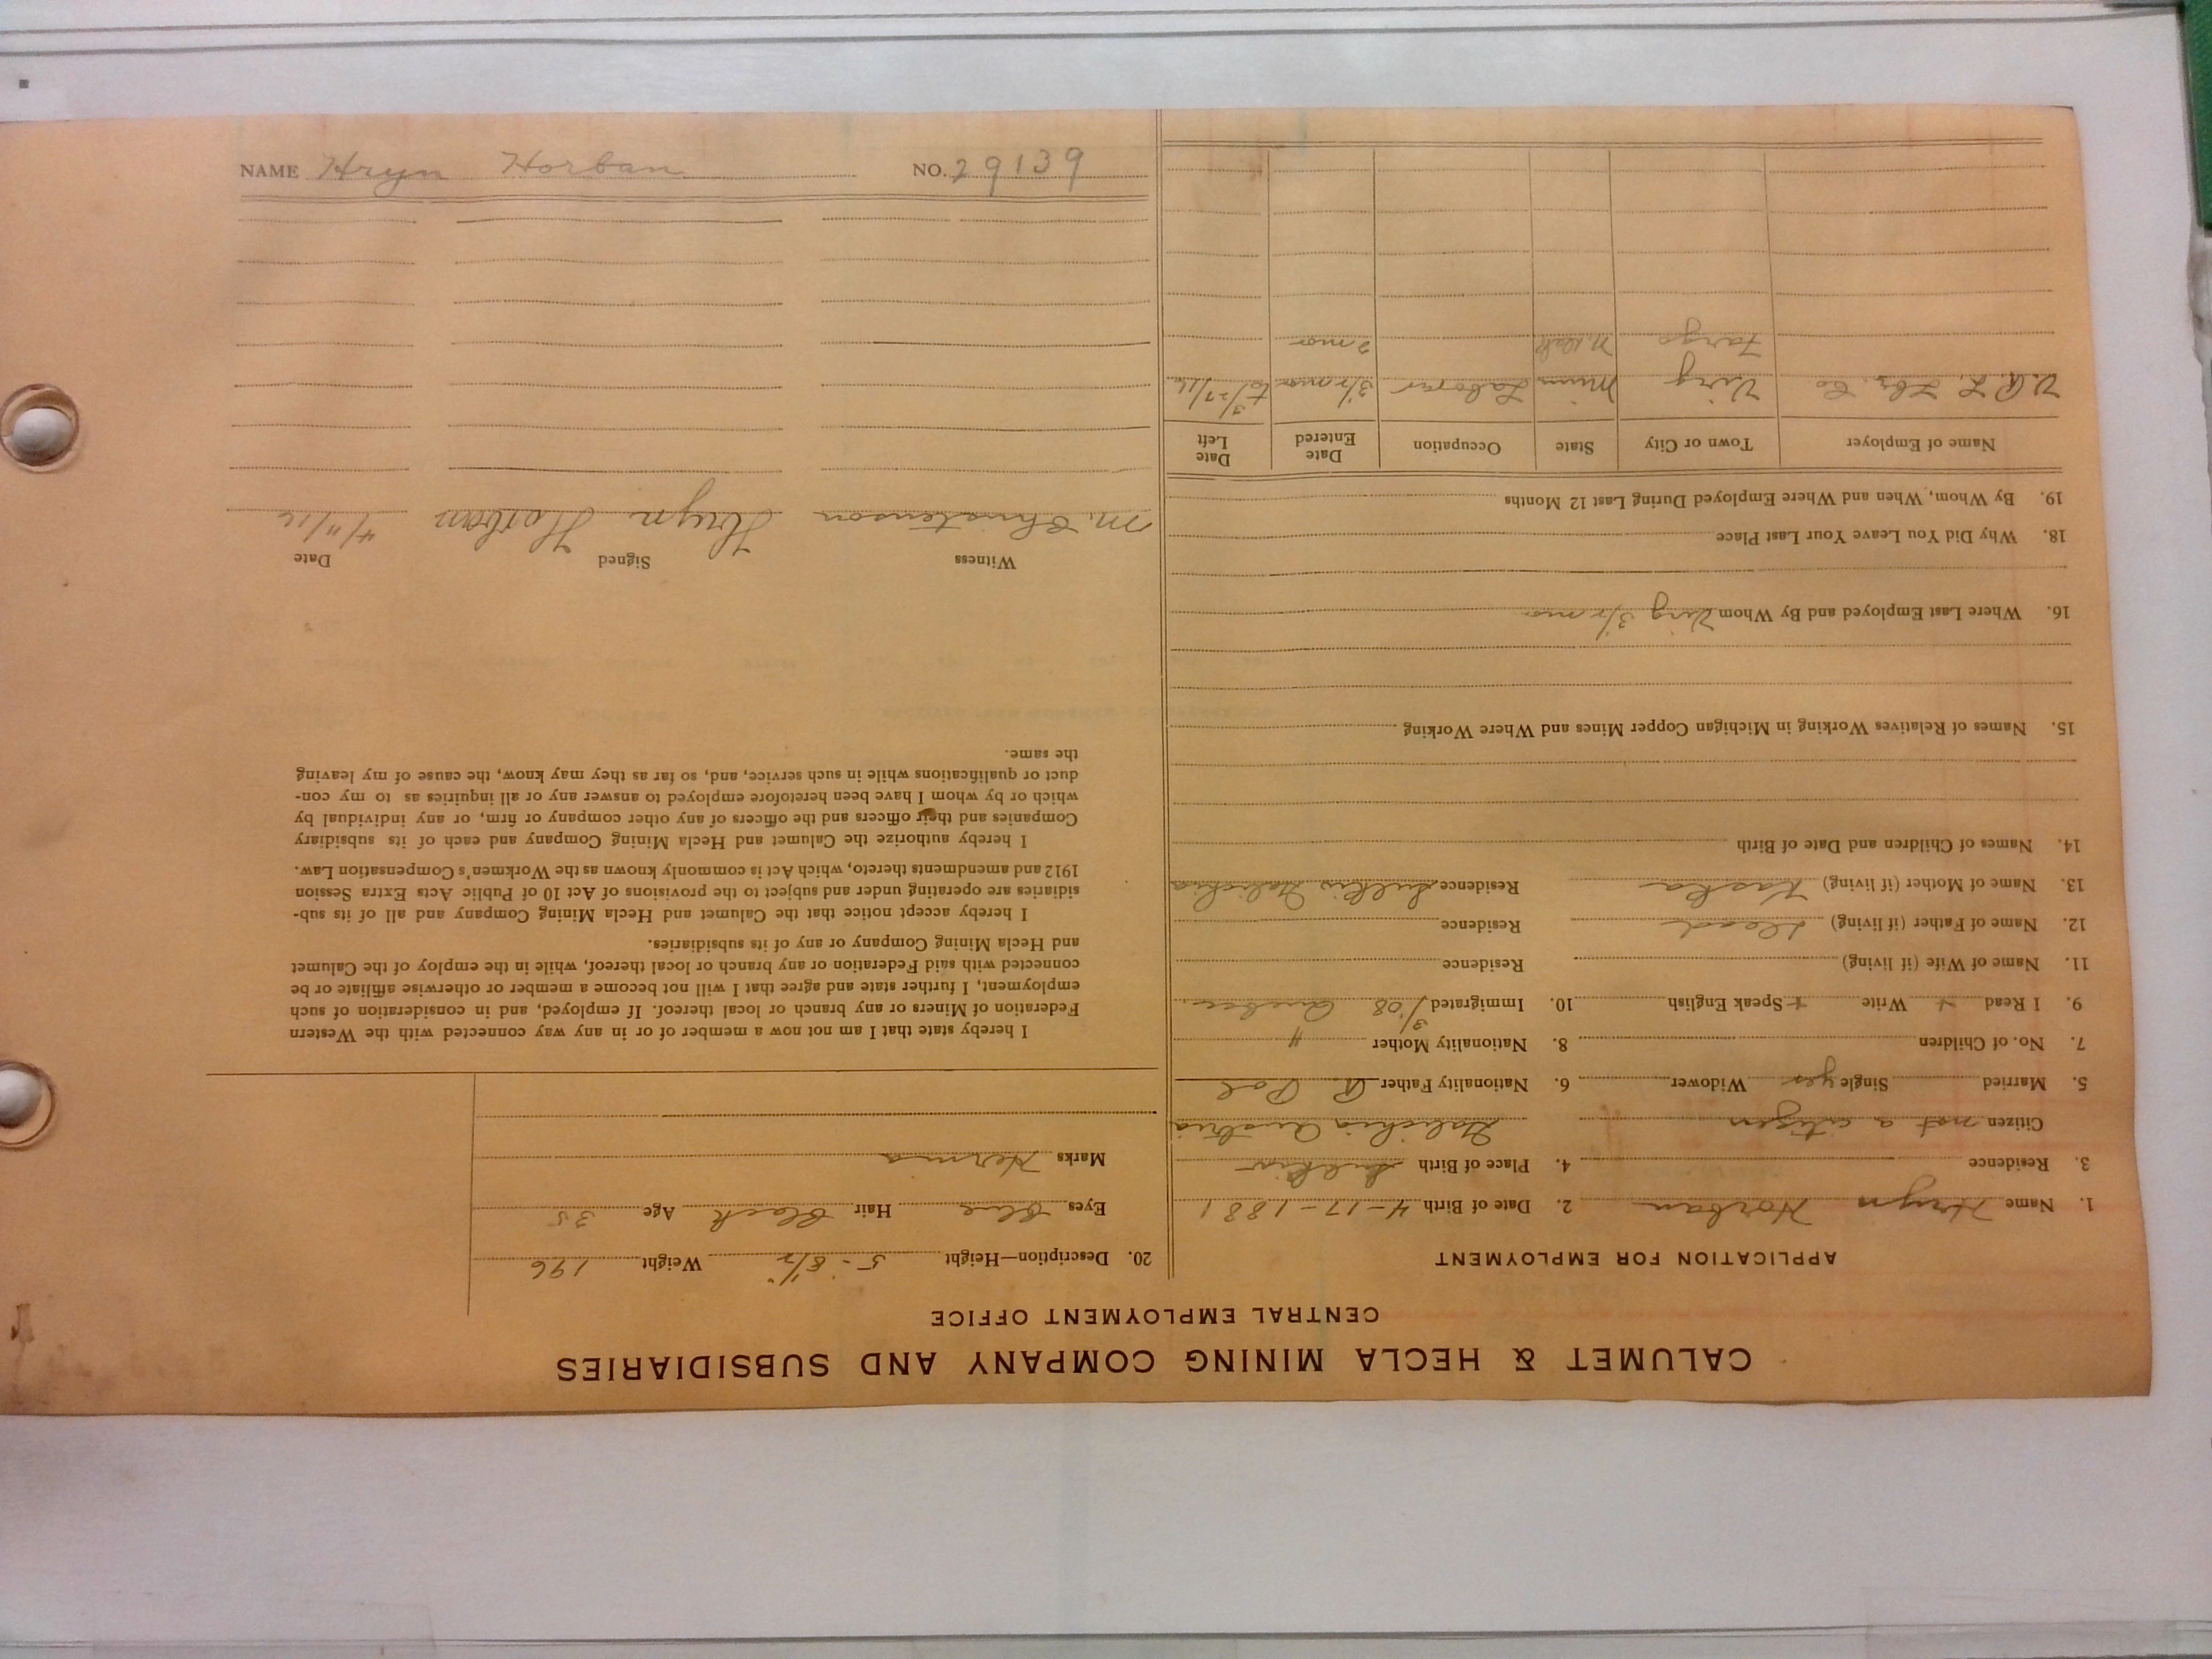 CALUMET & HECLA MINING COMPANY AND SUBSIDIARIES
CENTRAL EMPLOYMENT OFFICE
APPLICATION FOR EMPLOYMENT
1. Name Hryn Horban 2. Date of Birth 4-17-1881
3. Residence 4. Place of Birth
Citizen not a citizen Galichia Austria
5. Married Single yes Widower 6. Nationality Father R. Pol
7. No. of Children 8. Nationality Mother "
9. I Read + Write + Speak English 10. Immigrated 3/08 Quebec
11. Name of Wife (if living) Residence
12. Name of Father (if living) Dead Residence
13. Name of Mother (if living) Kaska Residence Galichia
14. Names of Children and Date of Birth
15. Names of Relatives Working in Michigan Copper Mines and Where Working
16. Where Last Employed and By Whom Virg 3 1/2 mos
18. Why Did You Leave Your Last Place
19. By Whom, When and Where Employed During Last 12 Months
Name of Employer Town or City State Occupation Date Entered Date Left
V. & R. L. Lbr. Co Virg Minn Laborer 3 1/2 mos to 3/27/16
Fargo N. Dak 2 mos
20. Description—Height 5-8 1/2" Weight 196
Eyes Blue Hair Black Age 35
Marks
I hereby state that I am not now a member of or in any way connected with the Western
Federation of Miners or any branch or local thereof. If employed, and in consideration of such
employment, I further state and agree that I will not become a member or otherwise affiliate or be
connected with said Federation or any branch or local thereof, while in the employ of the Calumet
and Hecla Mining Company or any of its subsidiaries.
I hereby accept notice that the Calumet and Hecla Mining Company and all of its sub-
sidiaries are operating under and subject to the provisions of Act 10 of Public Acts Extra Session
1912 and amendments thereto, which Act is commonly known as the Workmen's Compensation Law.
I hereby authorize the Calumet and Hecla Mining Company and each of its subsidiary
Companies and their officers and the officers of any other company or firm, or any individual by
which or by whom I have been heretofore employed to answer any or all inquiries as to my con-
duct or qualifications while in such service, and, so far as they may know, the cause of my leaving
the same.
Witness Signed Date
M. Christenson Hryn Horban 4/11/16
NAME Hryn Horban NO. 29139